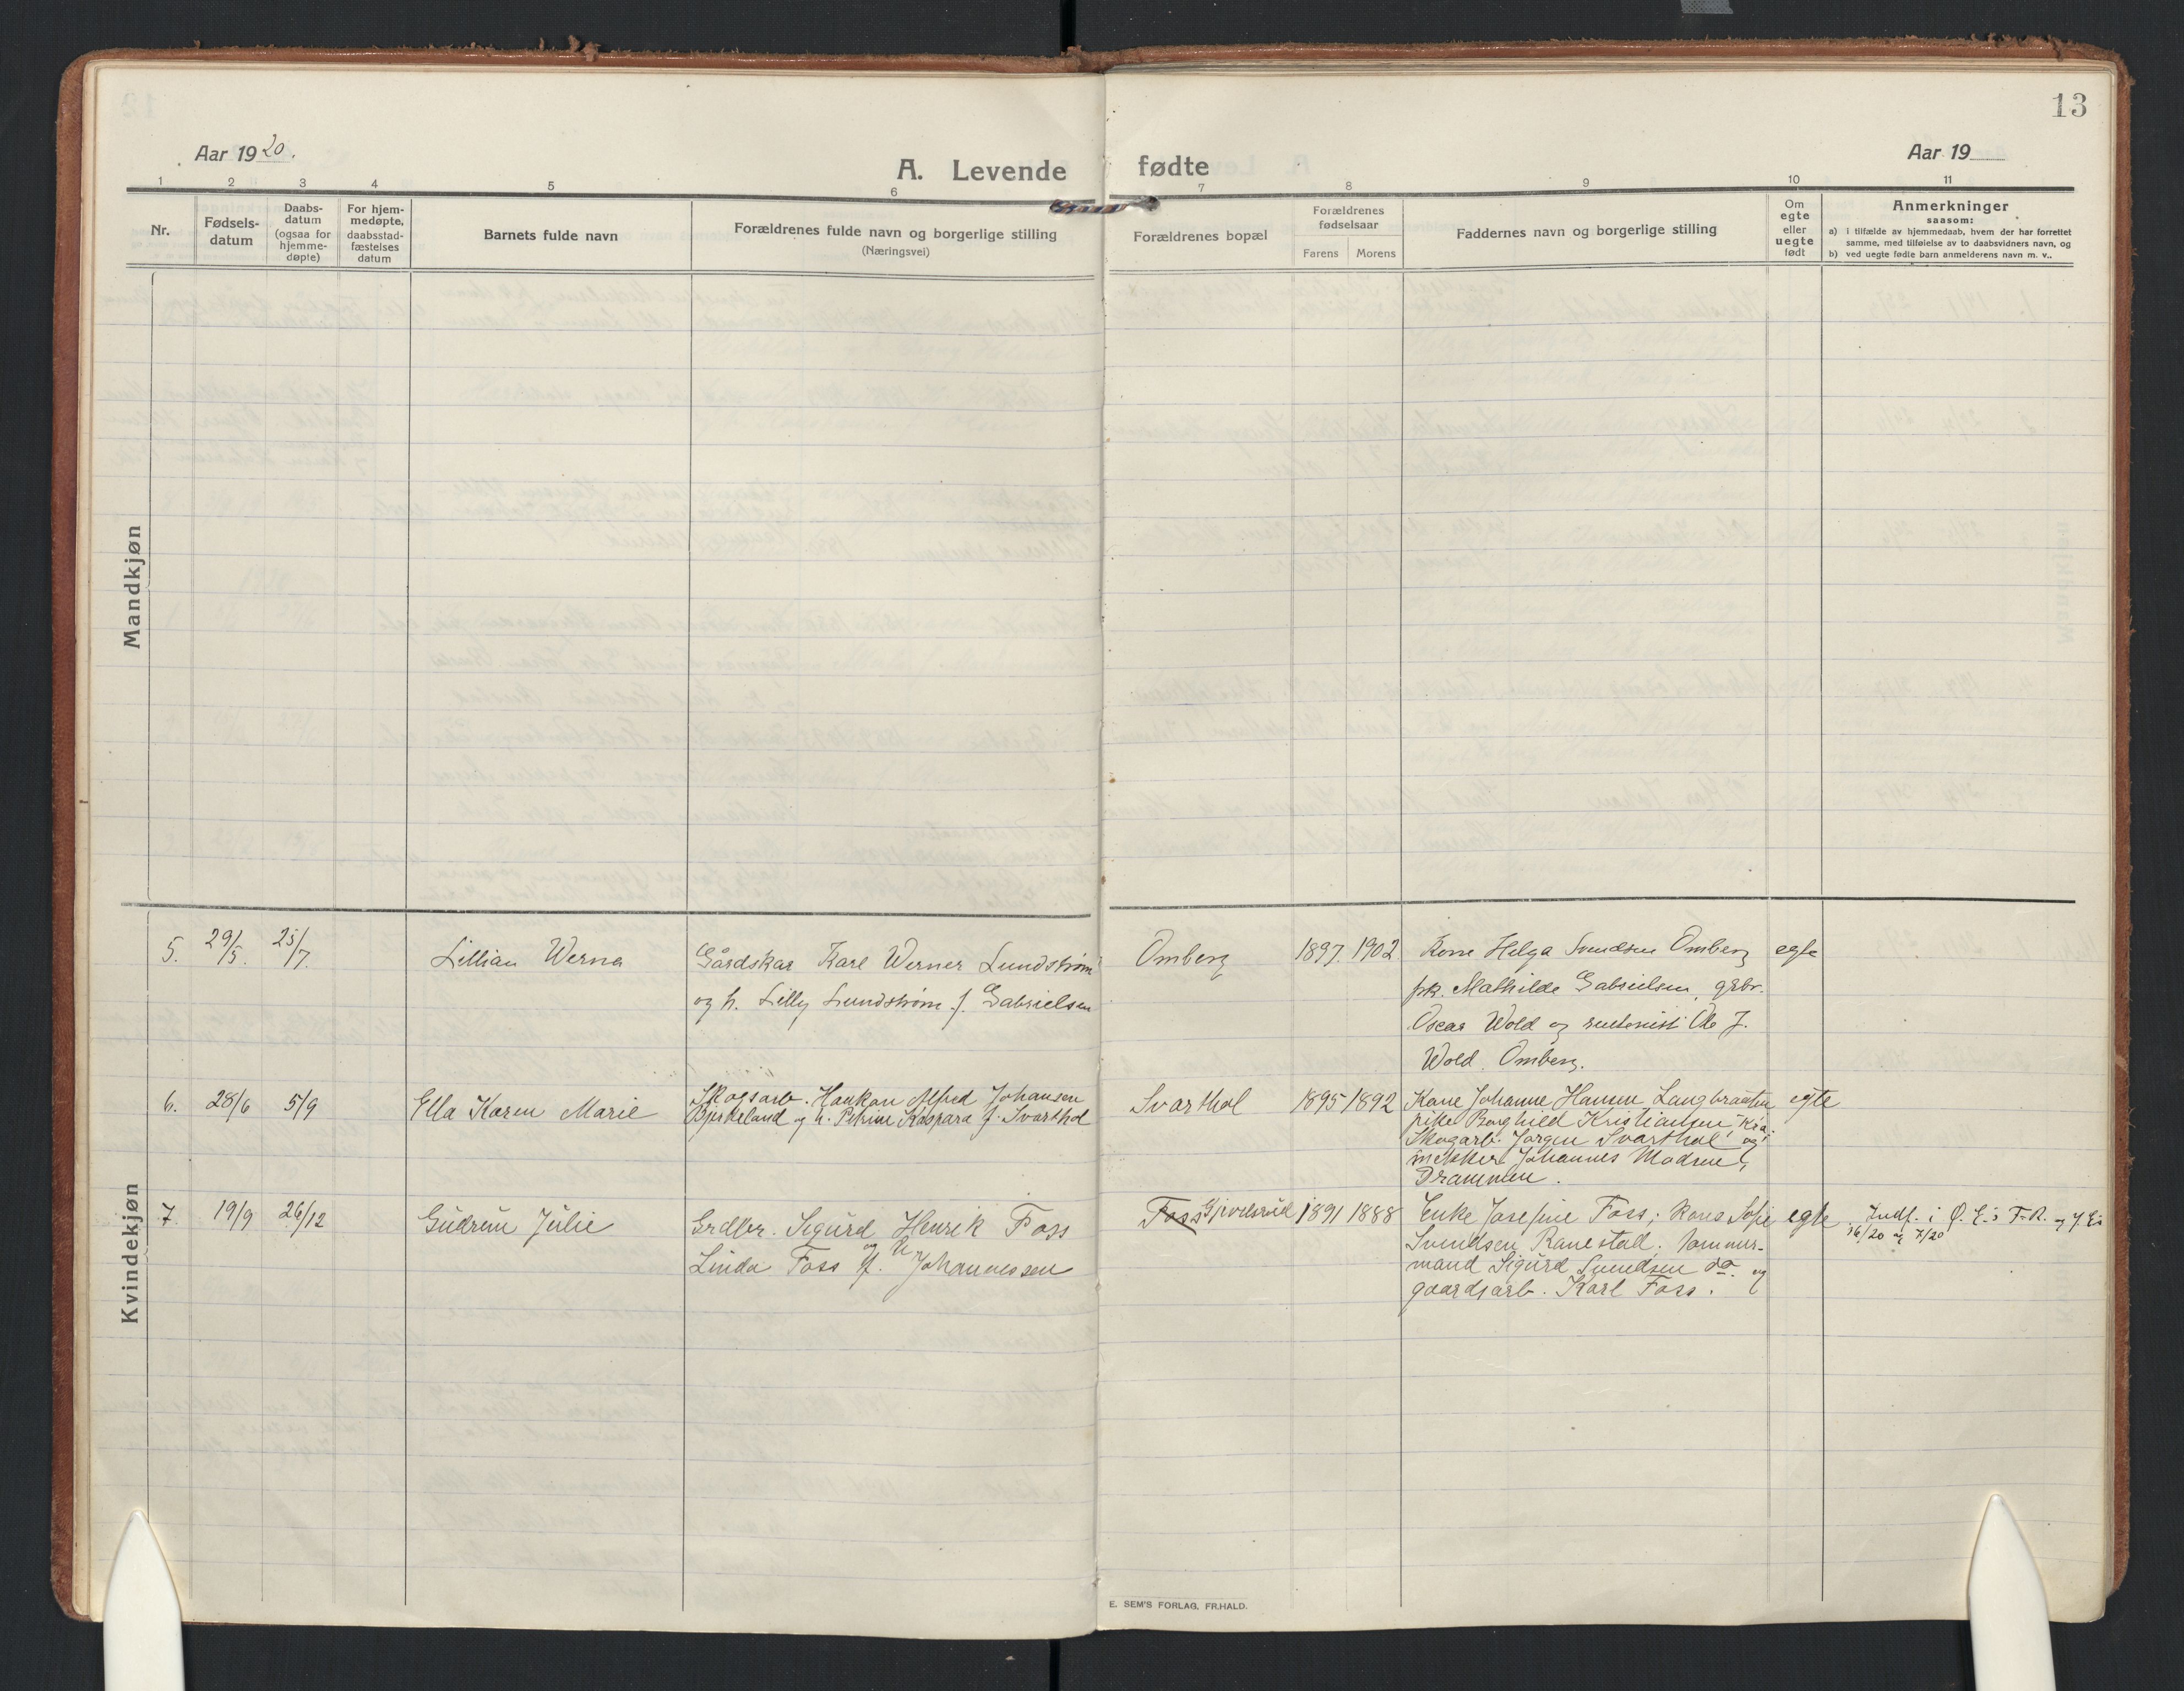 13
Aar 1920.
A. Levende fødte
Aar 19
1 2 3 4 5 6 7 8 9 10 11
Nr.
Fødsels-
datum
Daabs-
datum
(ogsaa for
hjemme-
døpte)
For hjem-
medøpte,
daabsstad-
fæstelses
datum
Barnets fulde navn
Forældrenes fulde navn og borgerlige stilling
(Næringsvei)
Forældrenes bopæl
Forældrenes
fødselsaar
Farens Morens
Faddernes navn og borgerlige stilling
Om
egte
eller
uegte
født
Anmerkninger
saasom:
a) i tilfælde av hjemmedaab, hvem der har forrettet
samme, med tilføielse av to daabsvidners navn, og
b) ved uegte fødte barn anmelderens navn m. v..
Mandkjøn
Kvindekjøn
5. 29/5. 25/7. Lillian Werna
Gårdskar Karl Werner Lundstrøm
og h. Lilly Lundstrøm f. Gabrielsen
Omberg 1897. 1902.
Kone Helga Svendsen Omberg
frk. Mathilde Gabrielsen, gdbr.
Oscar Wold og rentenist Ole J.
Wold. Omberg.
egte
6. 28/6 5/9 Ella Karen Marie
Skogsarb. Haakon Alfred Johansen
Bjerkeland og h. Petrine Kaspara f. Svarthol
Svarthol 1895 1892
Kone Johanne Hansen Langbraaten
pike Borghild Kristiansen, Kra.
Skogarb. Jørgen Svarthol og
snekker Johannes Madsen,
Drammen.
egte
7. 19/9 26/12 Gudrun Julie
Grdbr. Sigurd Henrik Foss
og h.
Linda Foss f. Johannessen
Foss 1891 1888
Enke Josefine Foss; kone Sofie
Svendsen Ranestad; tømmer-
mand Sigurd Svendsen do. og
gaardsarb. Karl Foss.
egte
Indf. i Ø. E.s F.R. og J. E.s
16/20 og 7/20
E. SEM'S FORLAG, FR.HALD.